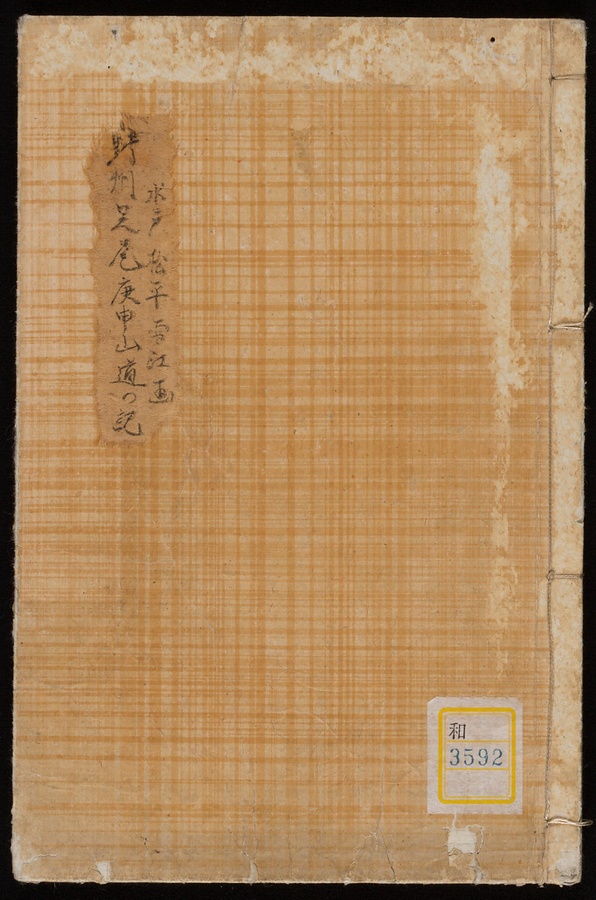 水戸松平雪江画
野州足尾庚申山道の記
和
3592